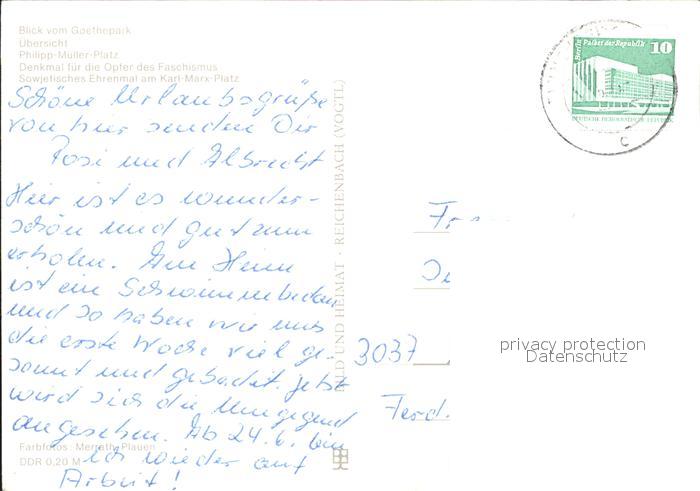 Blick vom Goethepark
Übersicht
Philipp-Müller-Platz
Denkmal für die Opfer des Faschismus
Sowjetisches Ehrenmal am Karl-Marx-Platz
Schöne Urlaubsgrüße
von hier senden Dir
Rosi und Albrecht
Hier ist es wunder-
schön und gut zum
erholen. Am Heim
ist ein Schwimmbecken
und so haben wir uns
die erste Woche viel ge-
sonnt und gebadet. Jetzt
wird sich die Umgegend
angesehen. Ab 24.6. bin
ich wieder auf
Arbeit!
Farbfotos: Merrath, Plauen
DDR 0,20 M
BILD UND HEIMAT · REICHENBACH (VOGTL)
Berlin Palast der Republik 10
DEUTSCHE DEMOKRATISCHE REPUBLIK
C
3037
Ferd.
privacy protection
Datenschutz